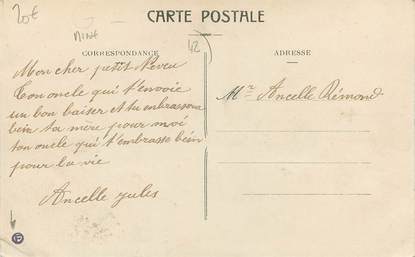 20€
MINE
12
CARTE POSTALE
CORRESPONDANCE
ADRESSE
Mon cher petit Neveu
Ton oncle qui t'envoie
un bon baiser et tu embrassera
bein ta mère pour moé
ton oncle qui t'embrasse bein
pour la vie
Ancelle jules
Mr Ancelle Rémond